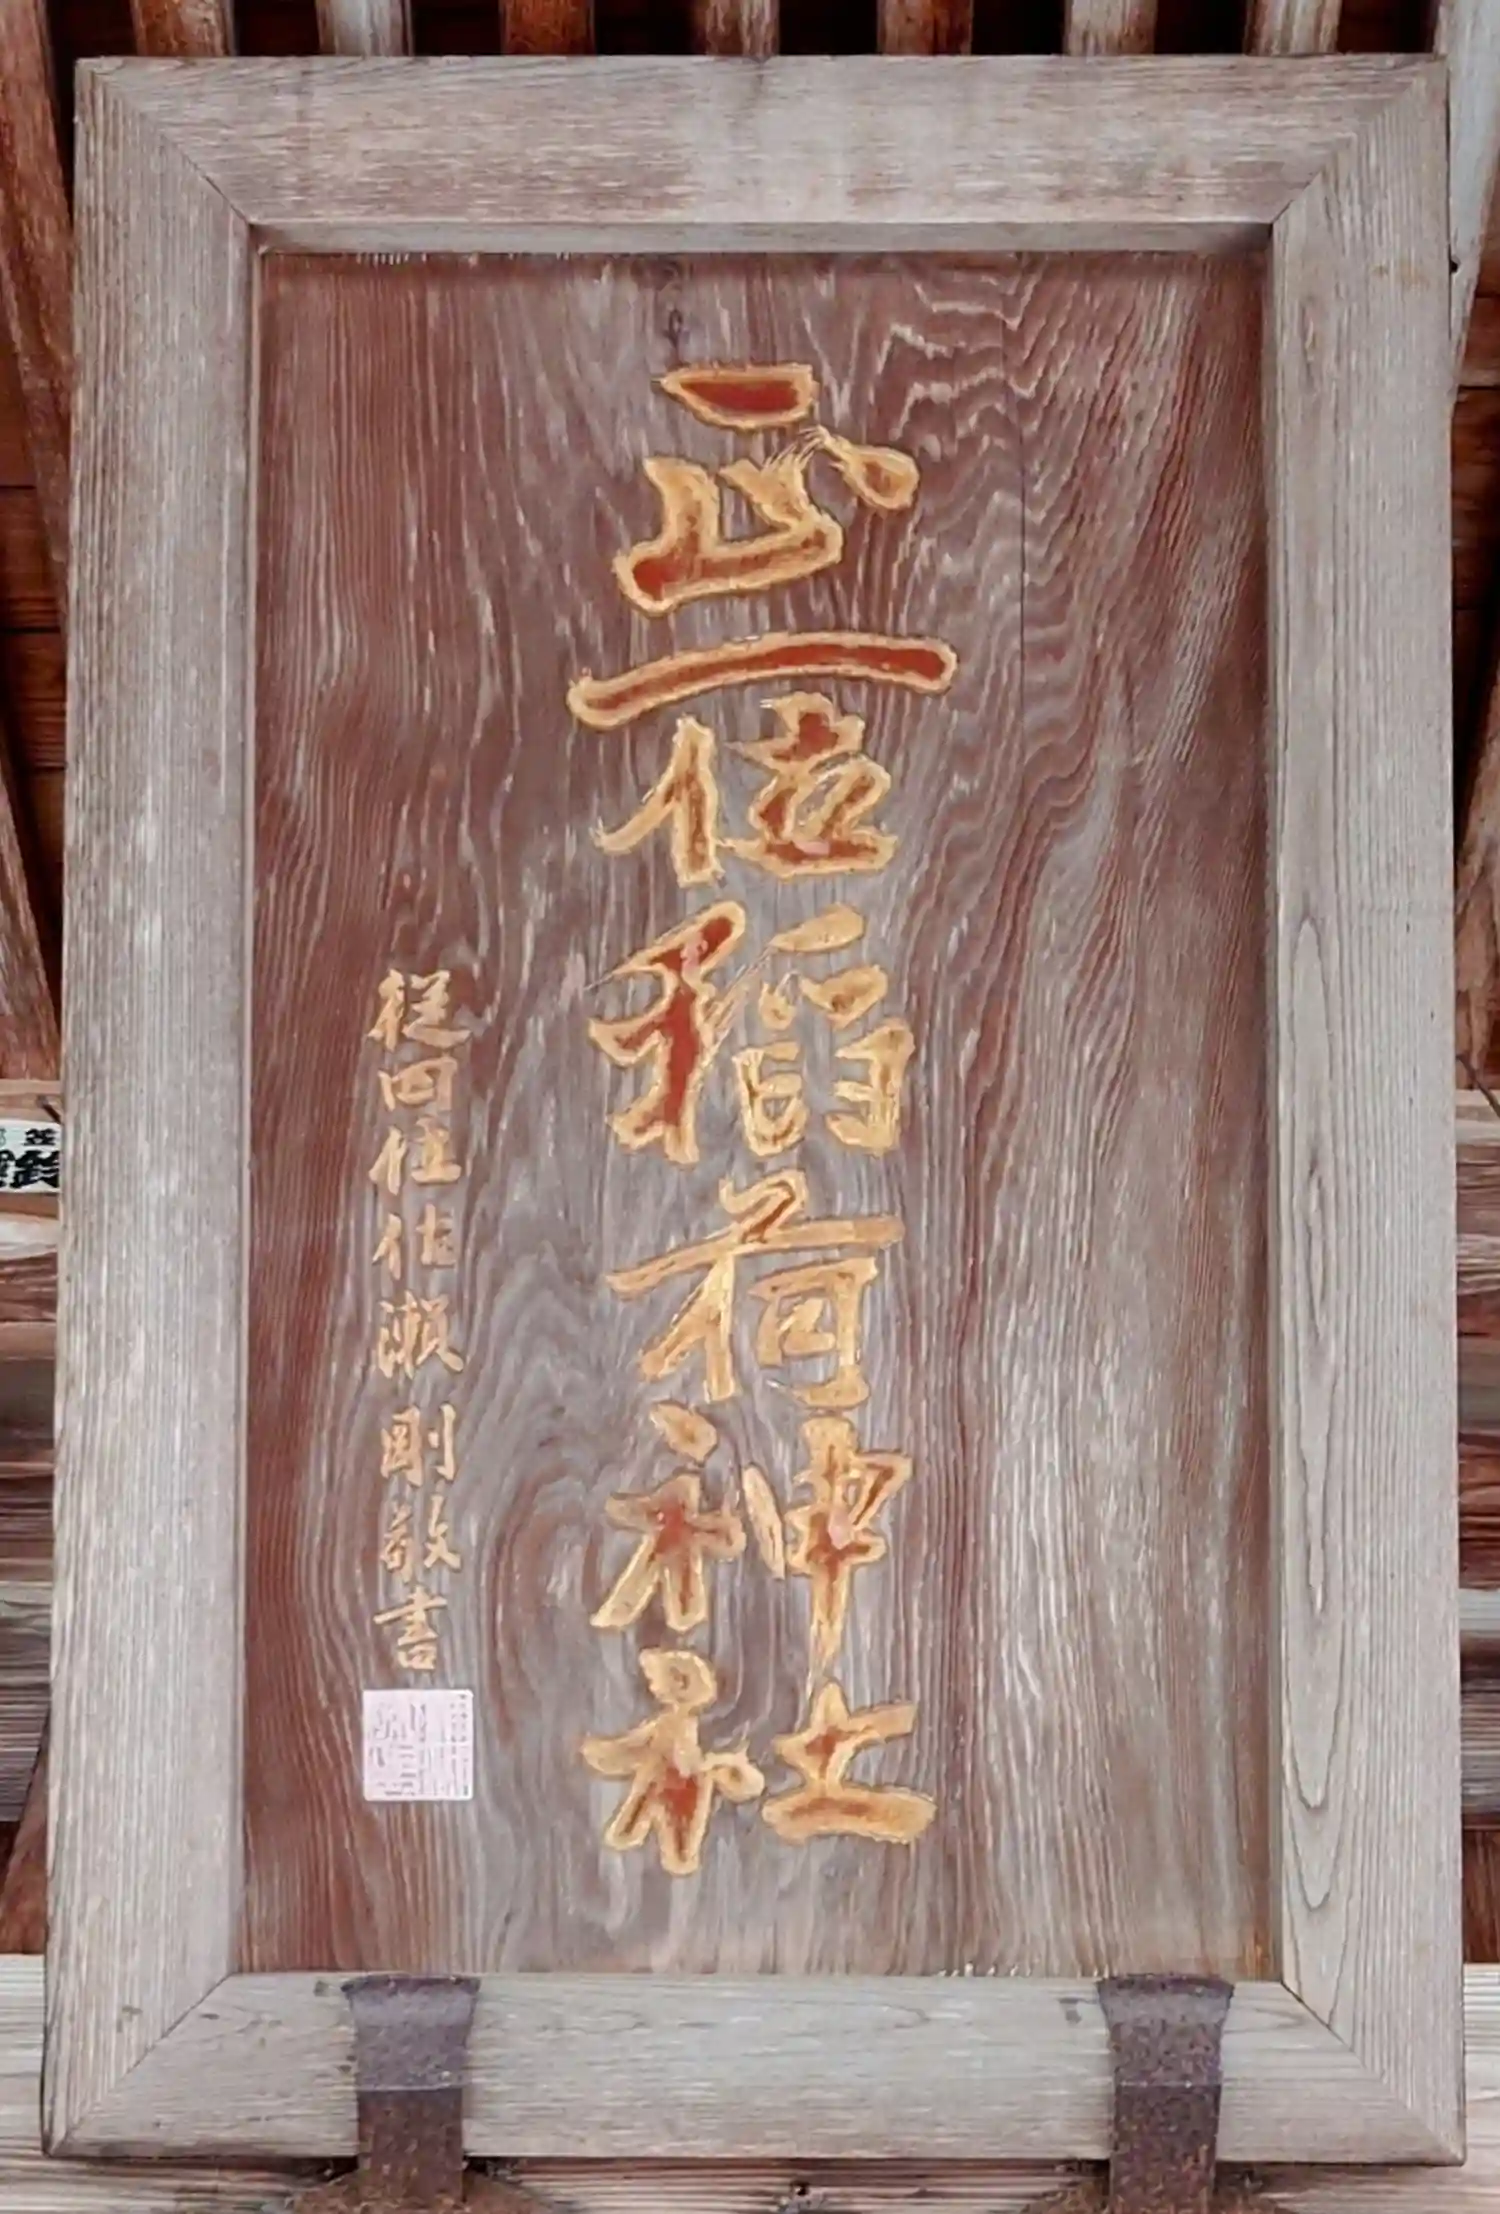 正一位稲荷神社
従四位佐瀬剛敬書